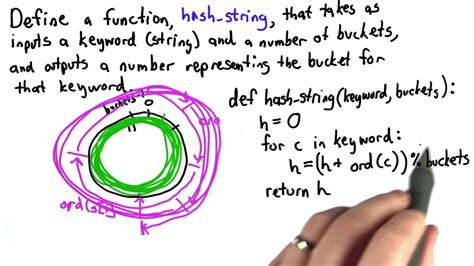 Define a function, hash_string, that takes as
inputs a keyword (string) and a number of buckets,
and outputs a number representing the bucket for
that keyword.
buckets-1
0
def hash_string(keyword, buckets):
h = 0
for c in keyword:
h = (h + ord(c)) % buckets
return h